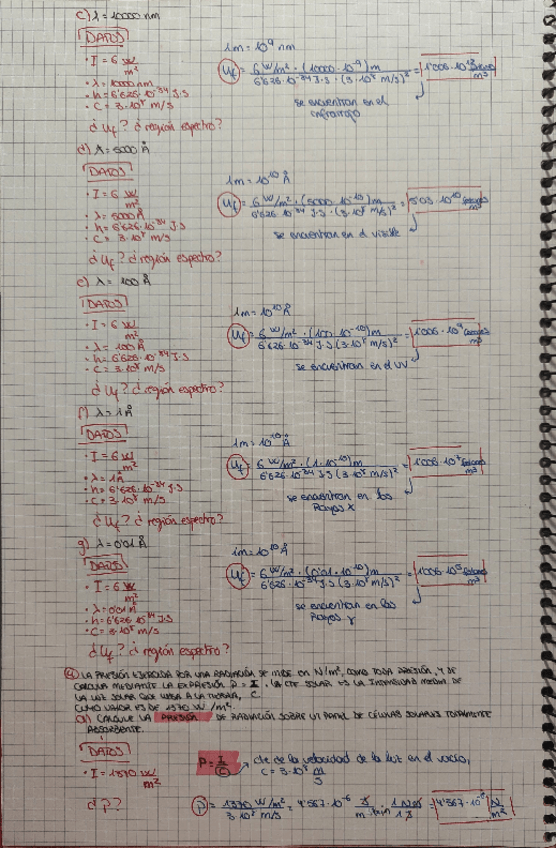 c) λ = 10000 nm
DATOS
· I = 6 W/m²
· λ = 10000 nm
· h = 6'626·10⁻³⁴ J·S
· C = 3·10⁸ m/s
¿Uf? ¿región espectro?
1m = 10⁹ nm
Uf = 6 W/m² · (10000·10⁻⁹)m / 6'626·10⁻³⁴ J·S · (3·10⁸ m/s)² =
se encuentran en el
infrarrojo
d) λ = 5000 Å
DATOS
· I = 6 W/m²
· λ = 5000 Å
· h = 6'626·10⁻³⁴ J·S
· C = 3·10⁸ m/s
¿Uf? ¿región espectro?
1m = 10¹⁰ Å
Uf = 6 W/m² · (5000·10⁻¹⁰)m / 6'626·10⁻³⁴ J·S · (3·10⁸ m/s)² =
se encuentran en el visible
e) λ = 100 Å
DATOS
· I = 6 W/m²
· λ = 100 Å
· h = 6'626·10⁻³⁴ J·S
· C = 3·10⁸ m/s
¿Uf? ¿región espectro?
1m = 10¹⁰ Å
Uf = 6 W/m² · (100·10⁻¹⁰)m / 6'626·10⁻³⁴ J·S (3·10⁸ m/s)² =
se encuentran en el UV
f) λ = 1 Å
DATOS
· I = 6 W/m²
· λ = 1 Å
· h = 6'626·10⁻³⁴ J·S
· C = 3·10⁸ m/s
¿Uf? ¿región espectro?
1m = 10¹⁰ Å
Uf = 6 W/m² · (1·10⁻¹⁰)m / 6'626·10⁻³⁴ J·S (3·10⁸ m/s)² =
se encuentran en los
Rayos X
g) λ = 0'01 Å
DATOS
· I = 6 W/m²
· λ = 0'01 Å
· h = 6'626·10⁻³⁴ J·S
· C = 3·10⁸ m/s
¿Uf? ¿región espectro?
1m = 10¹⁰ Å
Uf = 6 W/m² · (0'01·10⁻¹⁰)m / 6'626·10⁻³⁴ J·S (3·10⁸ m/s)² =
se encuentran en los
Rayos γ
④ LA PRESIÓN EJERCIDA POR UNA RADIACIÓN SE MIDE EN N/m², COMO TODA PRESIÓN, Y SE
CALCULA MEDIANTE LA EXPRESIÓN P = I/C. LA CTE SOLAR ES LA INTENSIDAD MEDIA DE
LA LUZ SOLAR QUE LLEGA A LA TIERRA,
CUYO VALOR ES DE 1370 W/m².
a) CALCULE LA PRESIÓN DE RADIACIÓN SOBRE UN PANEL DE CÉLULAS SOLARES TOTALMENTE
ABSORBENTE.
DATOS
· I = 1370 W/m²
¿P?
P = I/C → cte de la velocidad de la luz en el vacío,
C = 3·10⁸ m/s
P = 1370 W/m² / 3·10⁸ m/s = 4'567·10⁻⁶